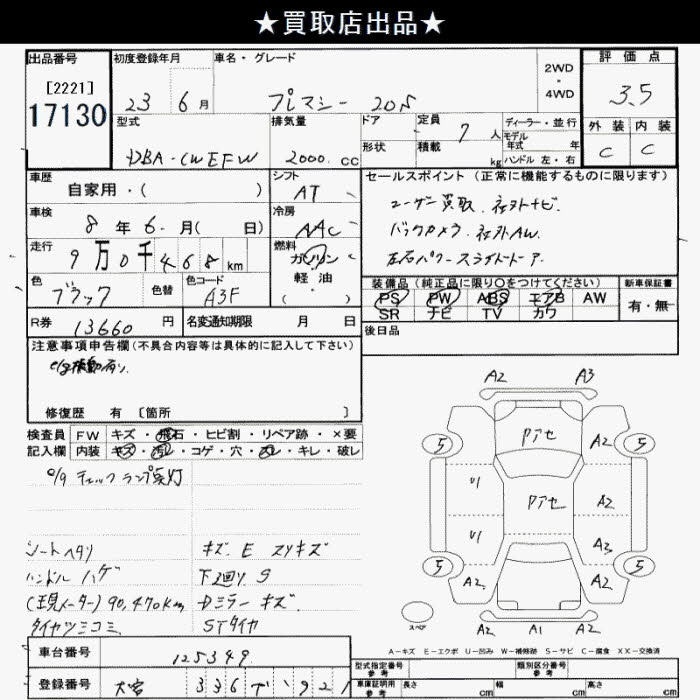 ★買取店出品★
出品番号 初度登録年月 車名・グレード 2WD・4WD 評価点
[2221]
17130
23 6月 プレマシー 20S 3.5
型式 排気量 ドア 定員 7人 ディーラー・並行 外装 内装
形状 積載 kg モデル年式 年
ハンドル 左・右
DBA-CWEFW 2000 cc C C
車歴 自家用・( ) シフト AT セールスポイント (正常に機能するものに限ります)
ユーザー買取、社外ナビ
車検 8年6月( 日) 冷房 AAC
バックカメラ、社外AW
走行 9万0千468km 燃料 ガソリン
軽油
( )
左右パワースライドドアー
色 ブラック 色替 色コード A3F
装備品 (純正品に限り○をつけてください) 新車保証書
PS PW ABS エアB AW 有・無
SR ナビ TV カワ
R券 13660円 名変通知期限 月 日
後日品
注意事項申告欄 (不具合内容等は具体的に記入して下さい)
e/g振動有り、
修復歴 有 〔箇所 〕
検査員 FW キズ・飛石・ヒビ割・リペア跡・×要
記入欄 内装 キズ・汚レ・コゲ・穴・スレ・キレ・破レ
e/gチェックランプ点灯
シートヘタリ キズ、E スリキズ
ハンドル ハゲ 下廻りS
(現メーター)90,470km Dミラーキズ、
タイヤツミコミ STタイヤ
A2 A3
5 Pアセ A2 5
U1 Pアセ A2
U1 A3
5 A2 A2 5
スペア A2 A1 A2
A-キズ E-エクボ U-凹み W-補修跡 S-サビ C-腐食 XX-交換済
車台番号 125349
登録番号 大宮 336
型式指定番号 参考 類別区分番号 参考
車庫証明用 参考 長さ cm 幅 cm 高さ cm